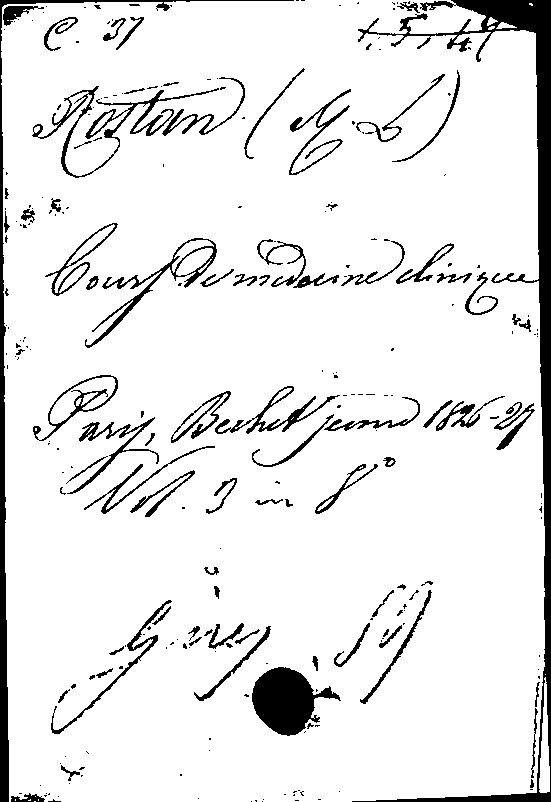 C. 37
Rostan (M. L)
Cours de médecine clinique
Paris, Bechet jeune 1826-27
Vol. 3 in 8°